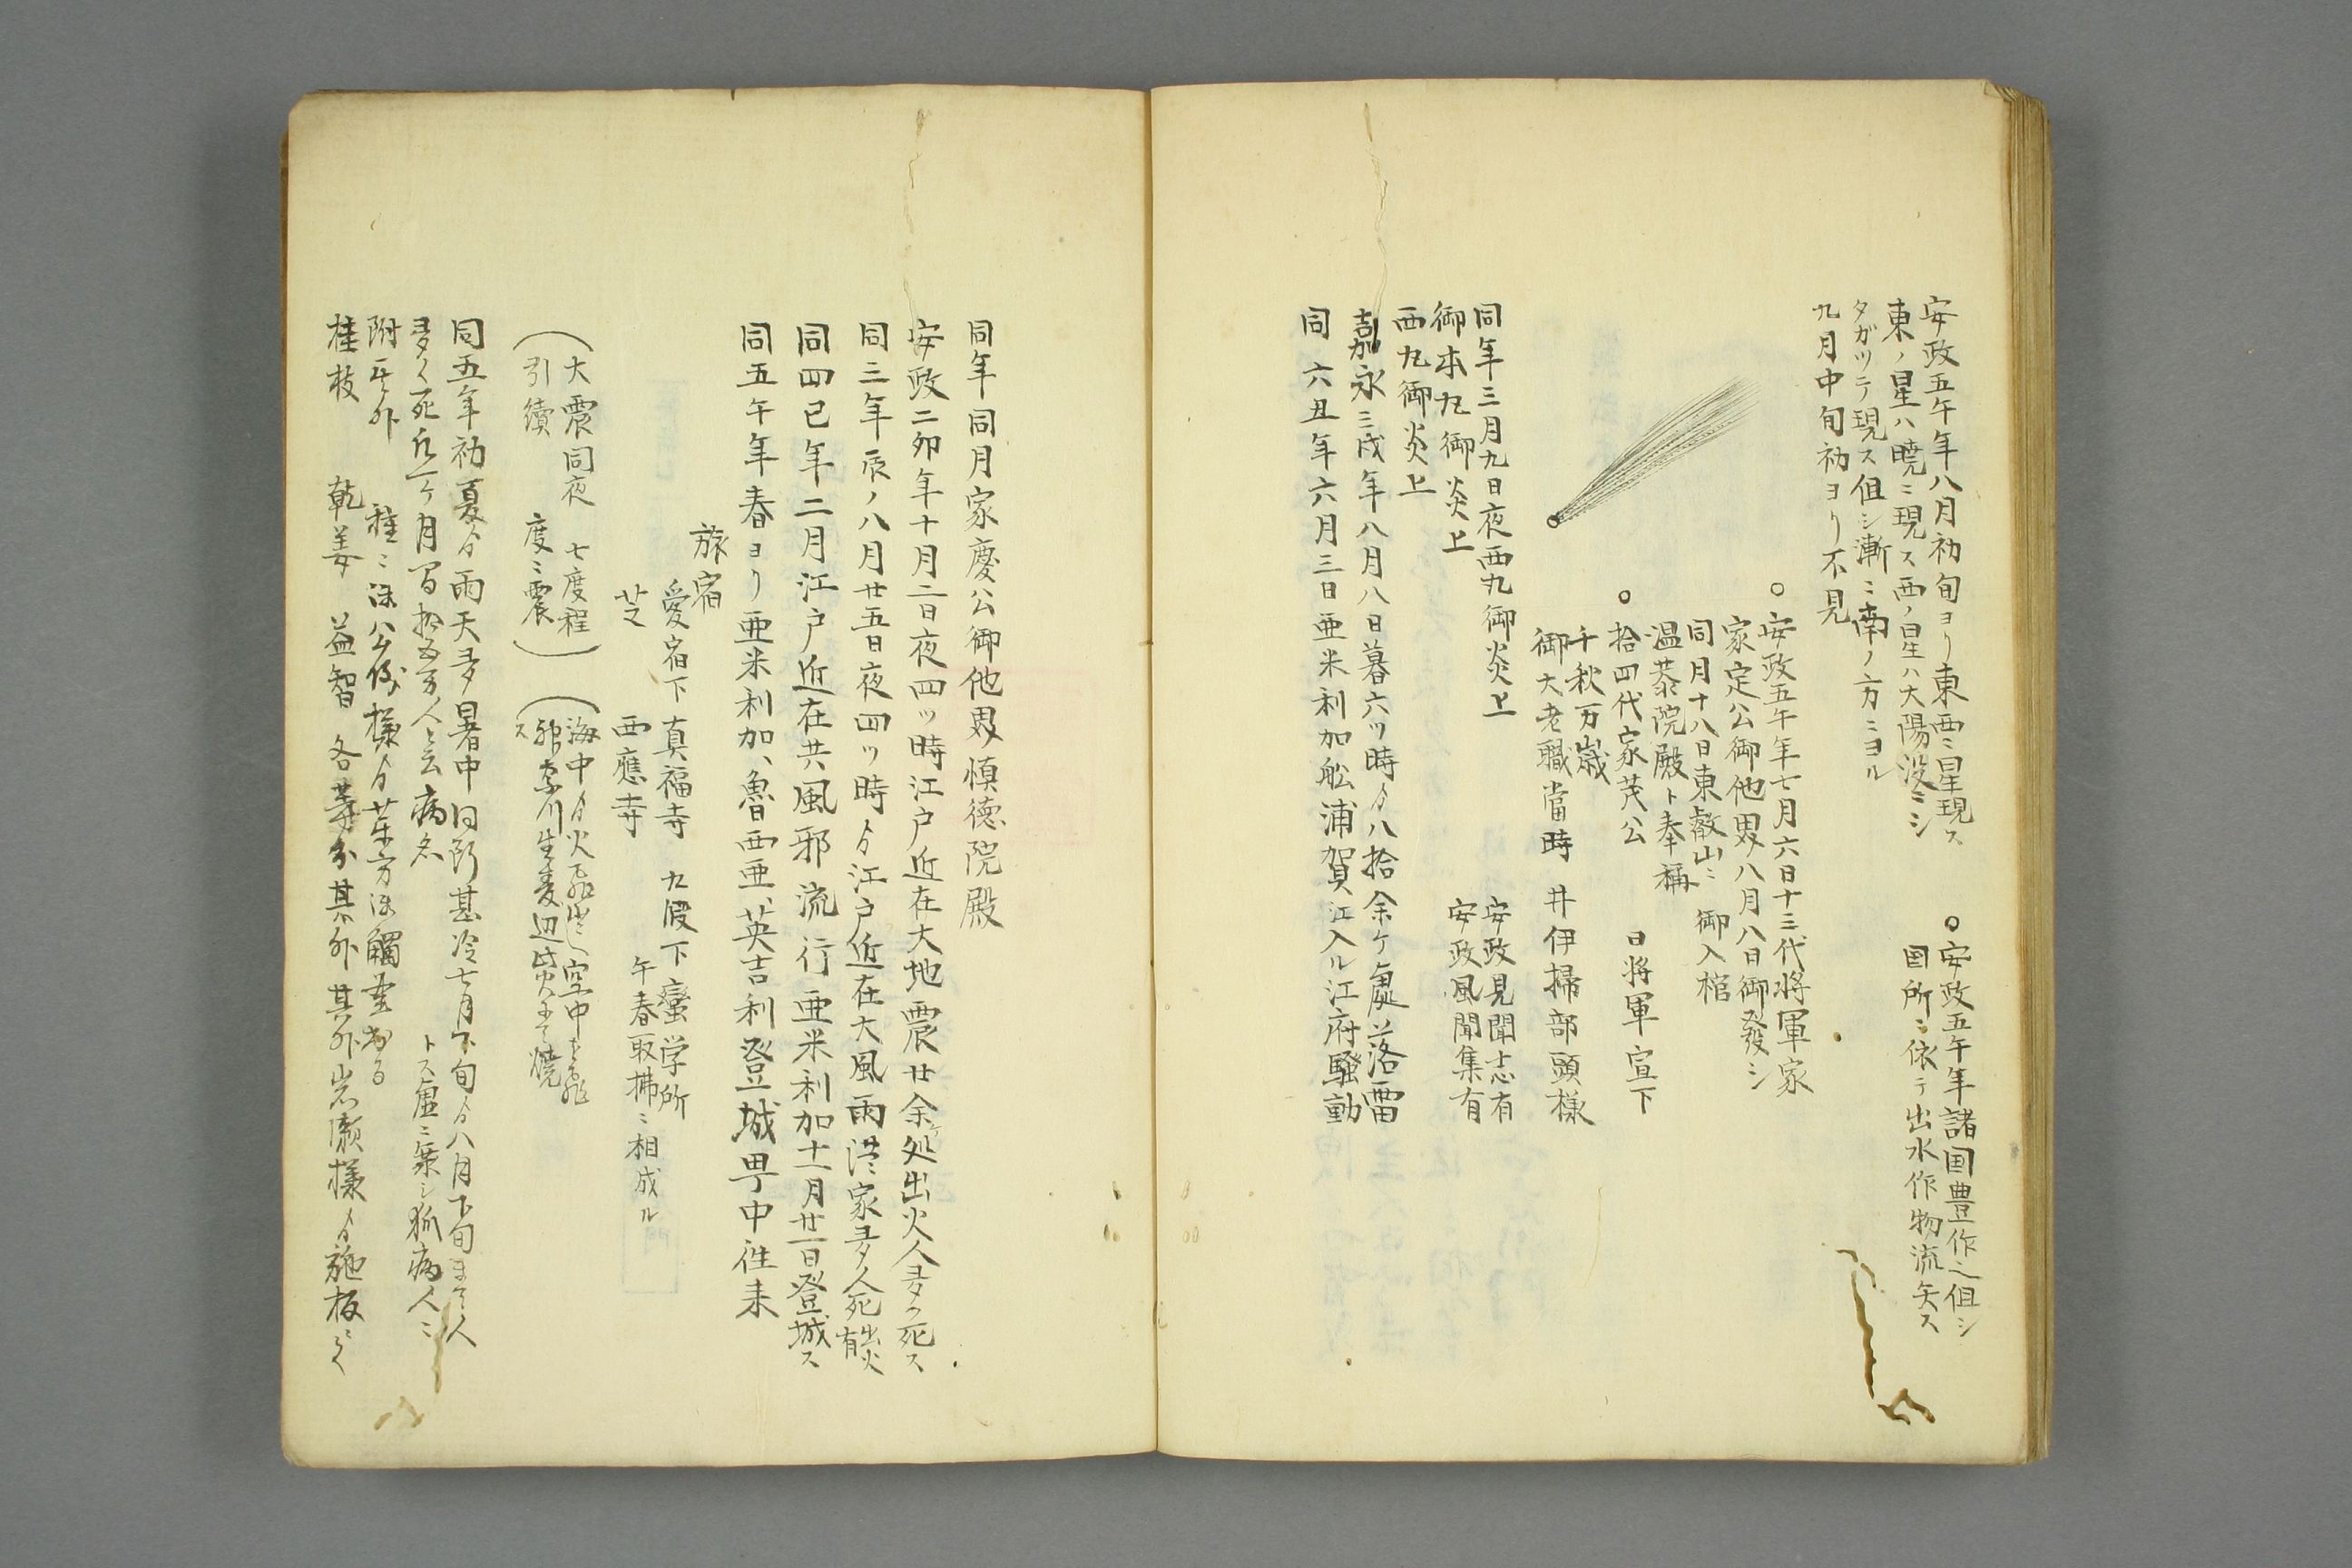 安政五午年八月初旬ヨリ東西ニ星現ス
東ノ星ハ暁ニ現ス西ノ星ハ大陽没ニシ
タガツテ現ス但シ漸ニ南ノ方ニヨル
九月中旬初ヨリ不見
○安政五午年諸国豊作之但シ
国所ニ依テ出水作物流矢ス
○安政五午年七月六日十三代将軍家
家定公御他界八月八日御發シ
同月十八日東叡山ニ御入棺
温恭院殿ト奉稱
○拾四代家茂公 日将軍宣下
千秋万歳
御大老職當時 井伊掃部頭様
同年三月九日夜西丸御炎上
御本丸御炎上
西丸御炎上
安政見聞志有
安政風聞集有
嘉永三戌年八月八日暮六ツ時ゟ八拾余ケ處落雷
同六丑年六月三日亜米利加舩浦賀江入ル江府騒動
同年同月家慶公御他界慎徳院殿
安政二卯年十月二日夜四ツ時江戸近在大地震廿余ケ処出火人多ク死ス
同三年辰ノ八月廿五日夜四ツ時ゟ江戸近在大風雨潰家多人死出火有
同四巳年二月江戸近在共風邪流行亜米利加十一月廿一日登城ス
同五午年春ヨリ亜米利加、魯西亜、英吉利登城畢中徃来
旅宿
愛宕下真福寺 九段下蠻学所
芝 西應寺 午春取拂ニ相成ル
（大震同夜 七度程
引續 度ニ震）
（海中ゟ火飛出し空中を飛
神奈川生麦辺 焼
ス
同五年初夏ゟ雨天多暑中 甚冷七月下旬ゟ八月下旬まて人
多く死凡一ケ月 拾五万人と云病名 トス虚ニ乗シ狐病人ニ
附其外 種ニ 公儀様ゟ薬方 觸
桂枝 乾姜 益智 各等分其外 其外岩瀬様ゟ施板